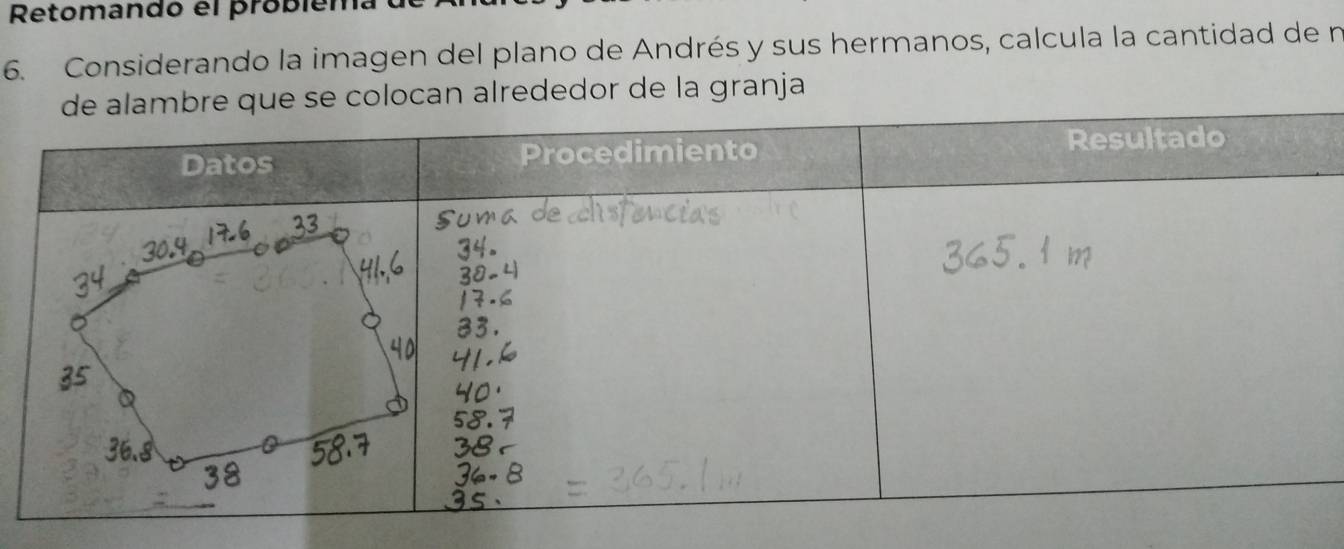 Retomando el problema de
6. Considerando la imagen del plano de Andrés y sus hermanos, calcula la cantidad de
de alambre que se colocan alrededor de la granja
Datos
Procedimiento
Resultado
34
30.4
17.6
33
41.6
40
58.7
38
36.8
35
suma de distancias
34.
30.4
17.6
33.
41.6
40.
58.7
38.
36.8
35.
= 365.1 m
365.1 m